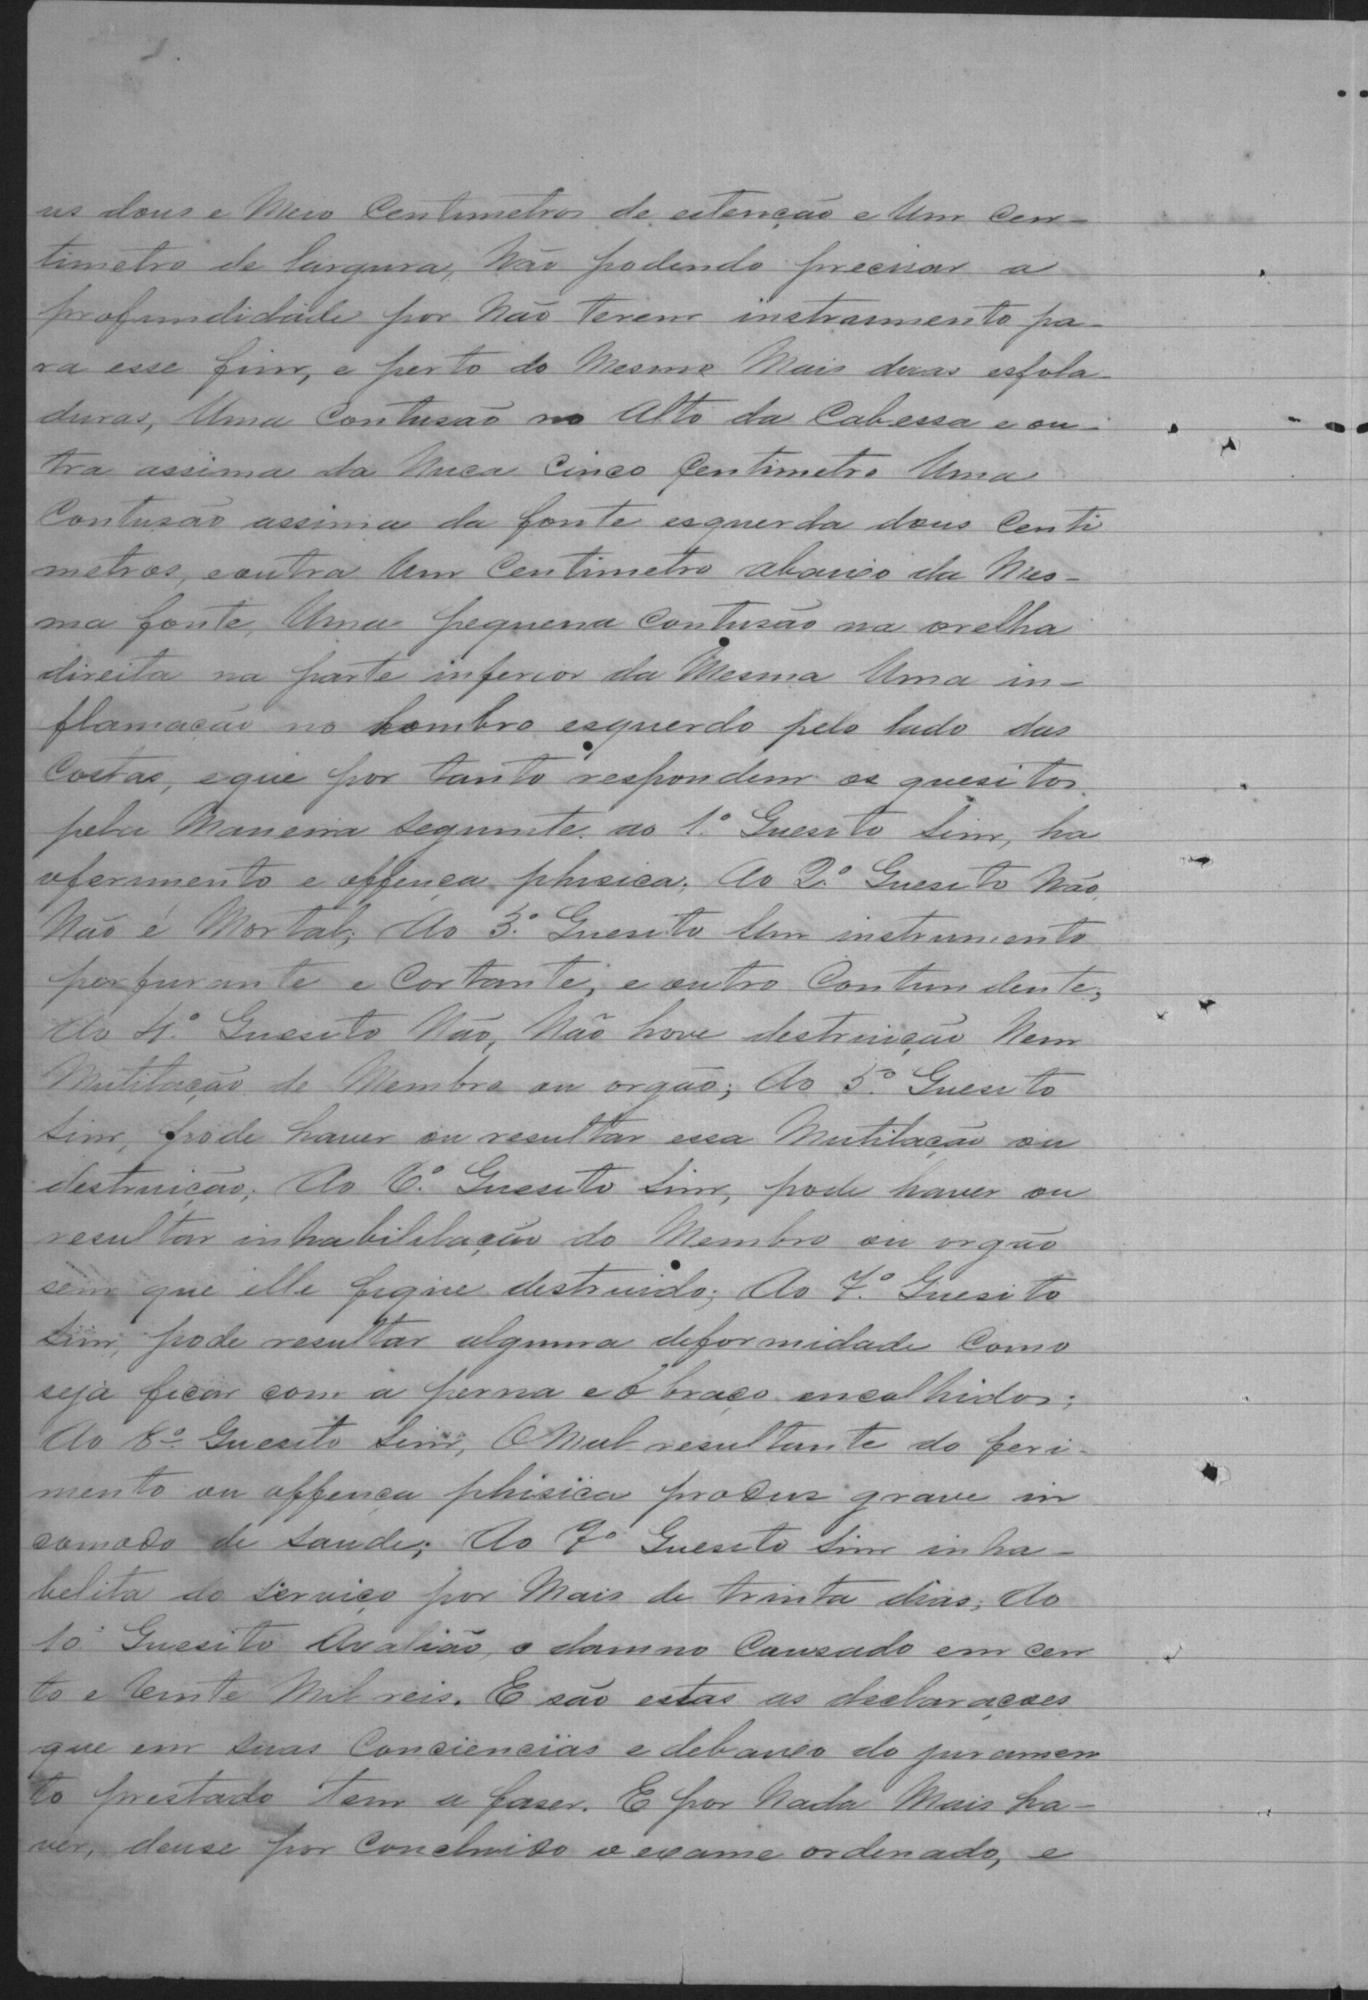 us dous e Meio Centimetros de estenção e Um Cen-
timetro de largura, Não podendo precisar a
profundidade por Não terem instrumento pa-
ra esse fim, e perto do Mesmo Mais duas esfola-
duras, Uma Contusão no Alto da Cabessa e ou-
tra assima da Nuca Cinco Centimetro Uma
Contusão assima da fonte esquerda dous Centi
metros, e outra Um Centimetro abaixo da Mes-
ma fonte, Uma pequena Contusão na orelha
direita na parte inferior da Mesma Uma in-
flamação no hombro esquerdo pelo lado das
Costas, e que por tanto respondem os quesitos
pela Maneira seguinte. ao 1º Quesito Sim, ha
oferimento e offença phisica. Ao 2º Quesito Não,
Não é Mortal; Ao 3º Quesito Um instrumento
perfurante e Cortante, e outro Contundente;
Ao 4º Quesito Não, Não hove destruição Nem
Mutilação de Membro ou orgão; Ao 5º Quesito
Sim, pode haver ou resultar essa Mutilação ou
destruição; Ao 6º Quesito Sim, pode haver ou
resultar inhabilitação do Membro ou orgão
sem que elle fique destruido; Ao 7º Quesito
Sim, pode resultar alguma deformidade Como
seja ficar com a perna e o braço encolhidos;
Ao 8º Quesito Sim, O Mal resultante do feri-
mento ou offença phisica produs grave in
comodo de saude; Ao 9º Quesito Sim inha-
belita do serviço por Mais de trinta dias; Ao
10º Quesito Avalião, o damno Causado em cen
to e Vinte Mil reis. E são estas as declarações
que em suas Conciencias e debaixo do juramen
to prestado tem a faser. E por Nada Mais ha-
ver, deuse por Concluido o exame ordenado, e